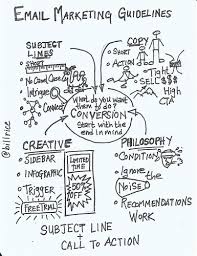 EMAIL MARKETING GUIDELINES
SUBJECT
LINES
SHORT
No Camel Case
Intrigue
Connect
COPY
SHORT
ACTION
Tight
SELL $$$
High
CTA
What do you want
them to do?
CONVERSION
Start with the
end in mind
@billrice
CREATIVE
SIDEBAR
INFOGRAPHIC
TRIGGER
FREE TRIAL
LIMITED
TIME
50%
OFF
PHILOSOPHY
CONDITION
Ignore
the
NOISE
RECOMMENDATIONS
WORK
SUBJECT LINE
CALL TO ACTION